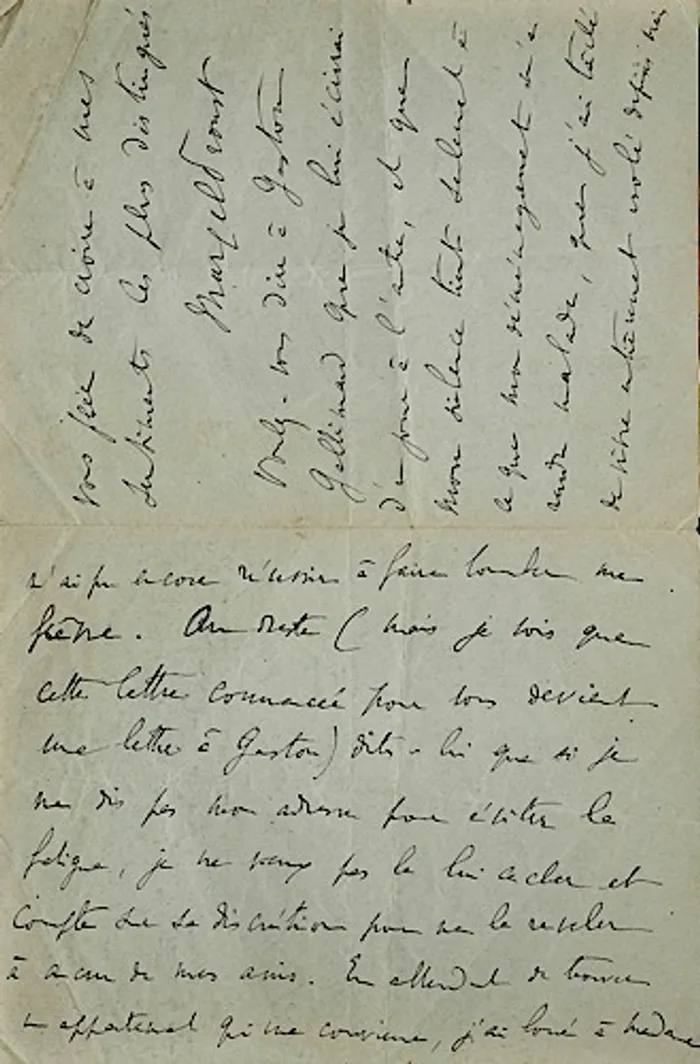 vous prie de croire à mes
sentiments les plus distingués
Marcel Proust
Voulez-vous dire à Gaston
Gallimard que je lui écrirai
d'un jour à l'autre, et que
mon silence tient seulement à
ce que mon déménagement m'a
rendu malade, que j'ai tâché
de vivre entièrement isolé depuis
n'ai pu encore réussir à faire tomber ma
fièvre. Au reste (mais je vois que
cette lettre commencée pour vous devient
une lettre à Gaston) dites-lui que si je
ne dis pas mon adresse pour éviter la
fatigue, je ne veux pas la lui cacher et
compte sur sa discrétion pour ne la révéler
à aucun de mes amis. En attendant de trouver
un appartement qui me convienne, j'ai loué à madame